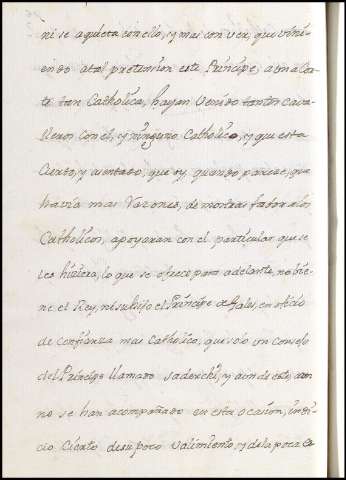 ni se aquieta con ello, y mas con ver, que vini-
endo atal pretension este Principe, auna Cor-
te tan Catholica, hayan Venido tantos Cava-
lleros con el, y ninguno Catholico, y que esta
Cierto, y asentado, que oy, quando parece, que
havia mas Razones, de mostrar fabor alos
Catholicos, apoyaran con el particular, que se
les hiziera, lo que se ofrece para adelante, no tie-
ne el Rey, ni su hijo el Principe de Gales, en oficio
de Confianza mas Catholico, que solo un Consejo
del Principe llamado y aun de este, aun
no se han acompañado en esta ocasion, indi-
cio Cierto de su poco Valimiento, y dela poca Ca